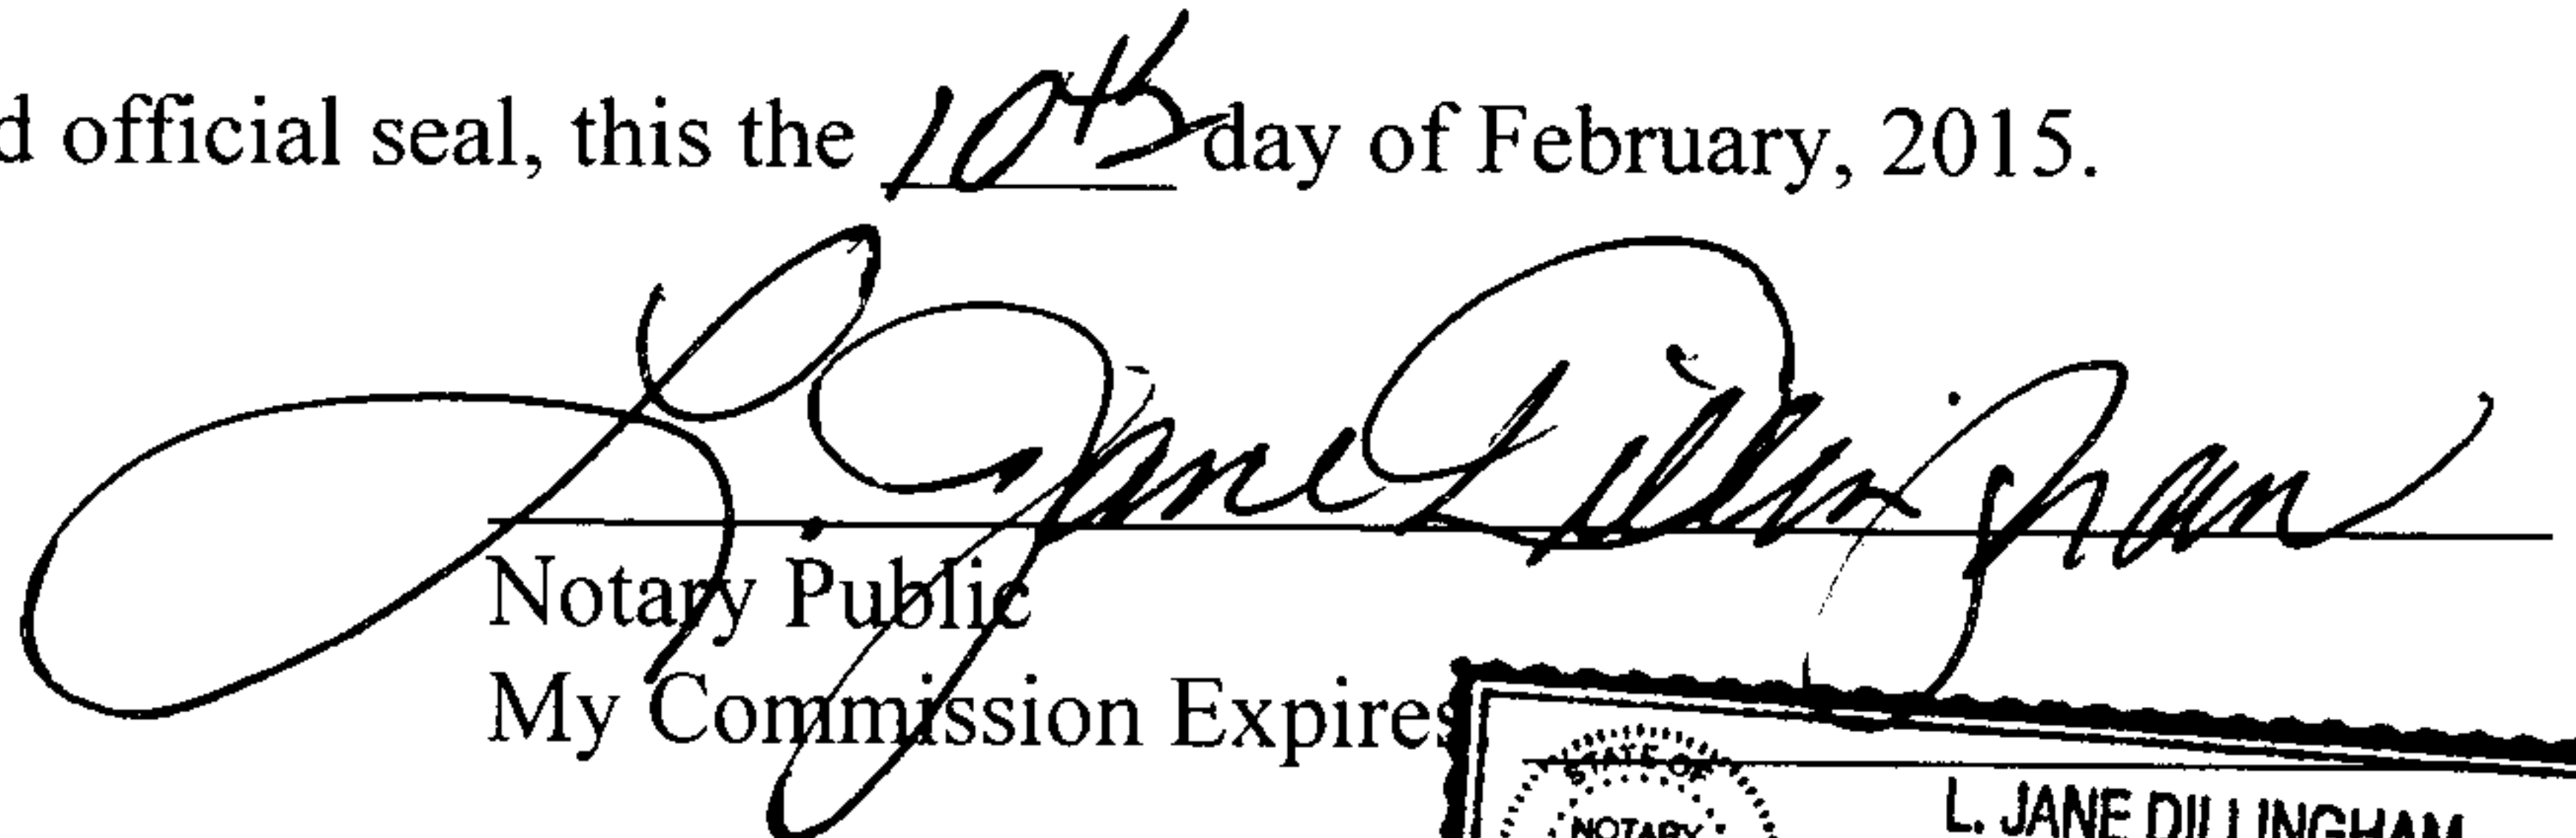 d official seal, this the 10th day of February, 2015.
L. Jane Dillingham
Notary Public
My Commission Expires
STATE OF
NOTARY
L. JANE DILLINGHAM